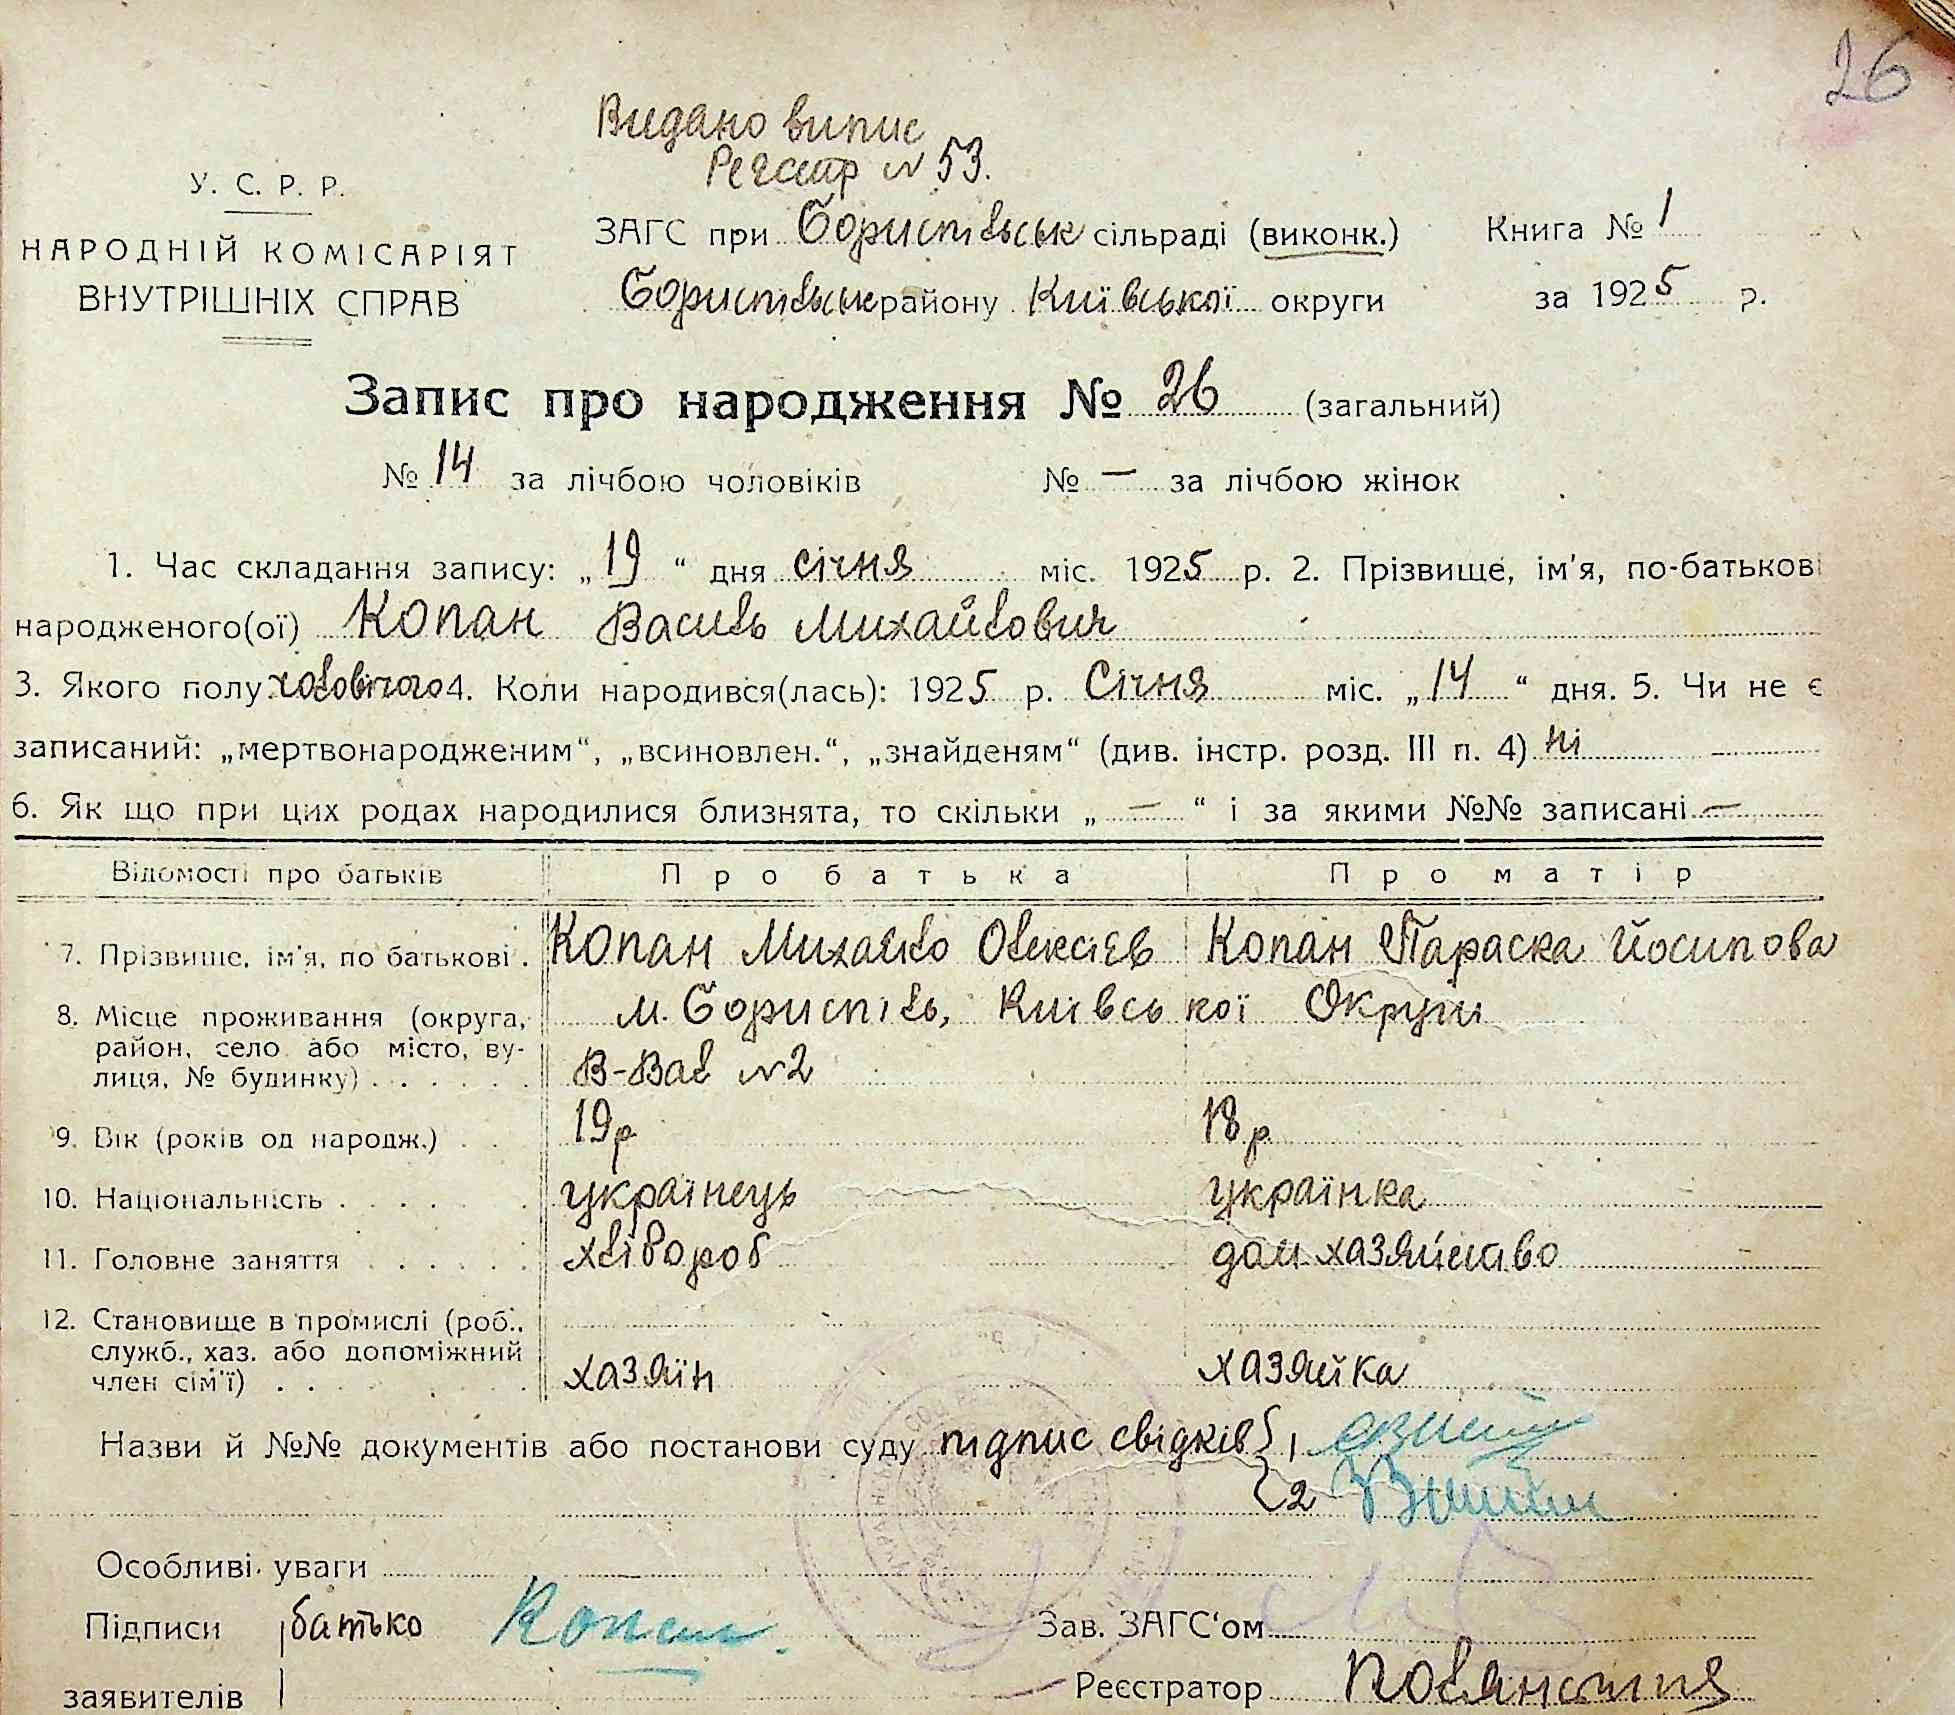 26
Видано випис
Реєстр № 53.
У. С. Р. Р.
НАРОДНІЙ КОМІСАРІЯТ
ВНУТРІШНІХ СПРАВ
ЗАГС при Бориспільськ сільраді (виконк.)
Бориспільськ району Київської округи
Книга № 1
за 1925 р.
Запис про народження № 26 (загальний)
№ 14 за лічбою чоловіків № — за лічбою жінок
1. Час складання запису: „19“ дня січня міс. 1925 р. 2. Прізвище, ім'я, по-батькові
народженого(ої) Копан Василь Михайлович
3. Якого полу чоловічого 4. Коли народився(лась): 1925 р. Січня міс. „14“ дня. 5. Чи не є
записаний: „мертвонародженим“, „всиновлен.“, „знайденям“ (див. інстр. розд. III п. 4) ні
6. Як що при цих родах народилися близнята, то скільки „—“ і за якими №№ записані —
Відомості про батьків Про батька Про матір
7. Прізвише, ім'я, по батькові . Копан Михайло Олексієв Копан Параска Йосипова
8. Місце проживання (округа, район, село або місто, вулиця, № будинку) . . . . . . м. Бориспіль, Київської Округи
В-Вал №2
9. Вік (років од народж.) . . 19 р 18 р
10. Національність . . . . . . українець українка
11. Головне заняття . . . . . . хлібороб дом. хазяйство
12. Становище в промислі (роб., служб., хаз. або допоміжний член сім'ї) . . . хазяїн хазяйка
Назви й №№ документів або постанови суду підпис свідків { 1
{ 2
Особливі уваги
Підписи батько Копан
заявителів
Зав. ЗАГС‘ом
Реєстратор